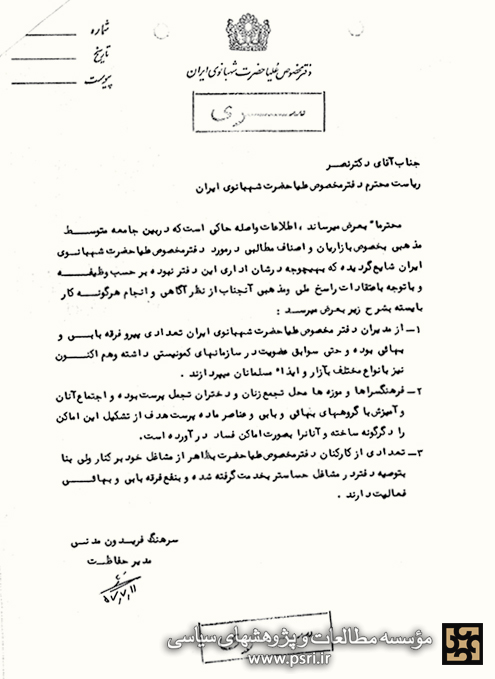 شماره
تاریخ
پیوست
دفتر مخصوص علیاحضرت شهبانوی ایران
سری
جناب آقای دکترنصر
ریاست محترم دفترمخصوص علیاحضرت شهبانوی ایران
محترما" بعرض میرساند ، اطلاعات واصله حاکی است که دربین جامعه متوسط
مذهبی بخصوص بازاریان و اصناف مطالبی درمورد دفترمخصوص علیاحضرت شهبانوی
ایران شایع گردیده که بهیچوجه درشان اداری این دفتر نبوده بر حسب وظیفه
و باتوجه باعتقادات راسخ ملی ومذهبی آنجناب از نظر آگاهی و انجام هرگونه کار
بایسته بشرح زیر بعرض میرسد :
۱ـ از مدیران دفتر مخصوص علیاحضرت شهبانوی ایران تعدادی پیرو فرقه بابی و
بهائی بوده و حتی سوابق عضویت در سازمانهای کمونیستی داشته وهم اکنون
نیز با نواع مختلف بآزار و ایذاء مسلمانان میپردازند .
۲ـ فرهنگسراها و موزه ها محل تجمع زنان و دختران تجمل پرست بوده و اجتماع آنان
و آمیزش با گروههای بهائی و بابی و عناصر ماده پرست هدف از تشکیل این اماکن
را دگرگونه ساخته و آنانرا بصورت اماکن فساد درآورده است .
۳ـ تعدادی از کارکنان دفترمخصوص علیاحضرت بظاهر از مشاغل خود برکنار ولی بنا
بتوصیه دفتردر مشاغل حساستر بخدمت گرفته شده و بنفع فرقه بابی و بهائی
فعالیت دارند .
سرهنگ فریدون مدنی
مدیر حفاظت
۵۷٫۷٫۱۱
سری
مؤسسه مطالعات و پژوهشهای سیاسی
www.psri.ir